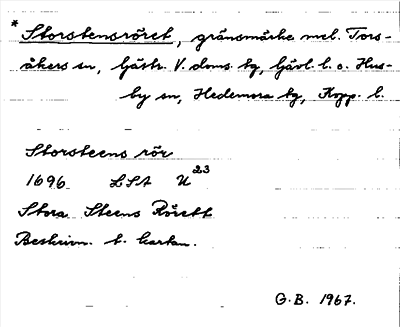 * Storstensröret, gränsmärke mel. Tors-
åkers sn, Gästr. V. doms. tg, Gävl. l. o. Hus-
by sn, Hedemora tg, Kopp. l.
Storsteens rör
1696 LSA U 23
Stora Steens Rörett
Beskrivn. t. kartan.
G.B. 1967.